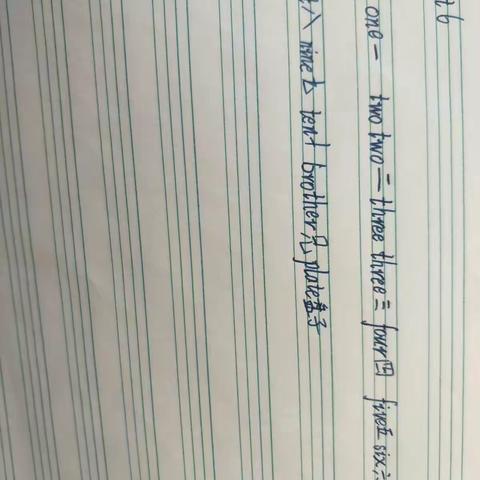 one 一 two two 二 three three 三 four 四 five 五 six 六
八 nine 九 ten 十 brother 兄 plate 盘子